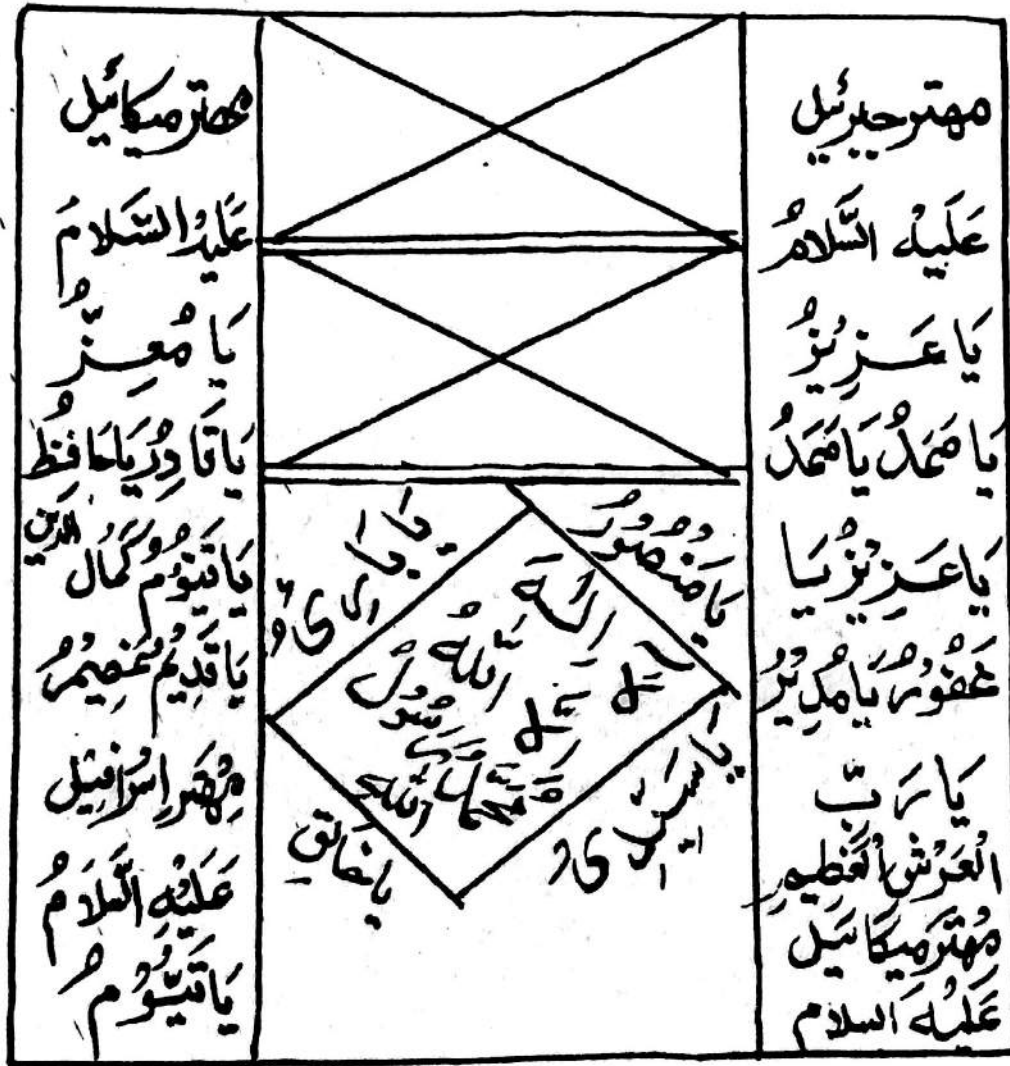 مهتر جبرئیل
عَلَيْهِ السَّلَامُ
يَا عَزِيزُ
يَا صَمَدُ يَا صَمَدُ
يَا عَزِيزُ يَا
غَفُورُ يَا مُدِيْرُ
يَا رَبّ
الْعَرْشِ الْعَظِيم
مُهْتَر مِيكَائيل
عَلَيْهِ السلام
يَا مَنْصُورُ
لَا اِلٰهَ
اِلَّا اللّٰهُ
مُحَمَّدٌ رَسُولُ
اللّٰه
يَا خَالِقِ
مهتر ميكائيل
عَلَيْهِ السَّلَامُ
يَا مُعِزُّ
يَا قَادِرُ يَا حَافِظُ
يَا قَيُّوْمُ كَمَال الدّين
يَا قَدِيمُ
مِهْتَر اِسْرَافِيْل
عَلَيْهِ السَّلَامُ
يَا قَيُّوْمُ